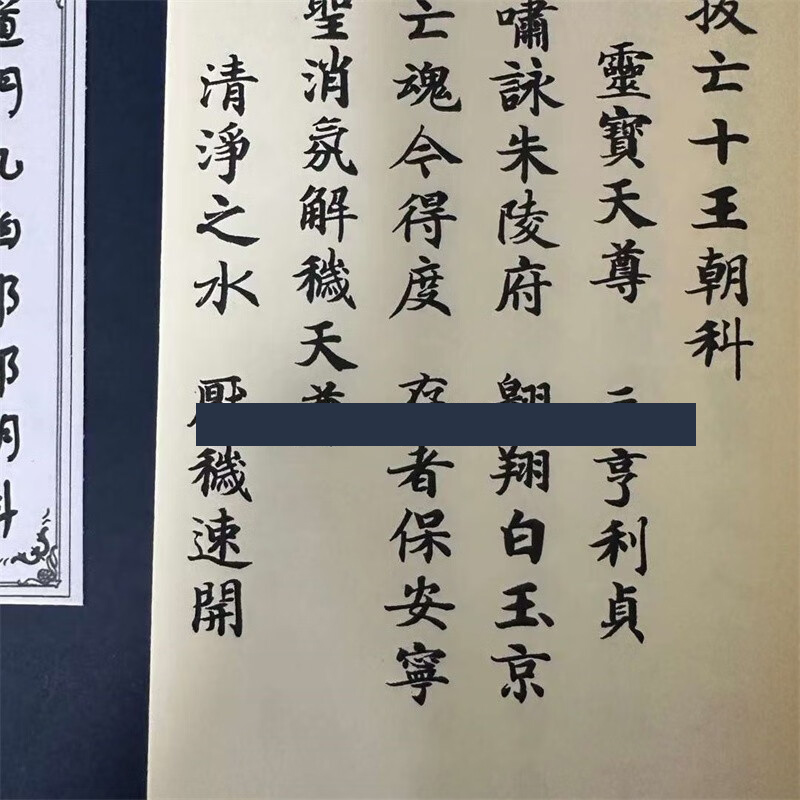 拔亡十王朝科
靈寶天尊 亨利貞
嘯詠朱陵府 翔白玉京
亡魂令得度 者保安寧
聖消氛解穢天
清淨之水 穢速開
道門九幽 朝科